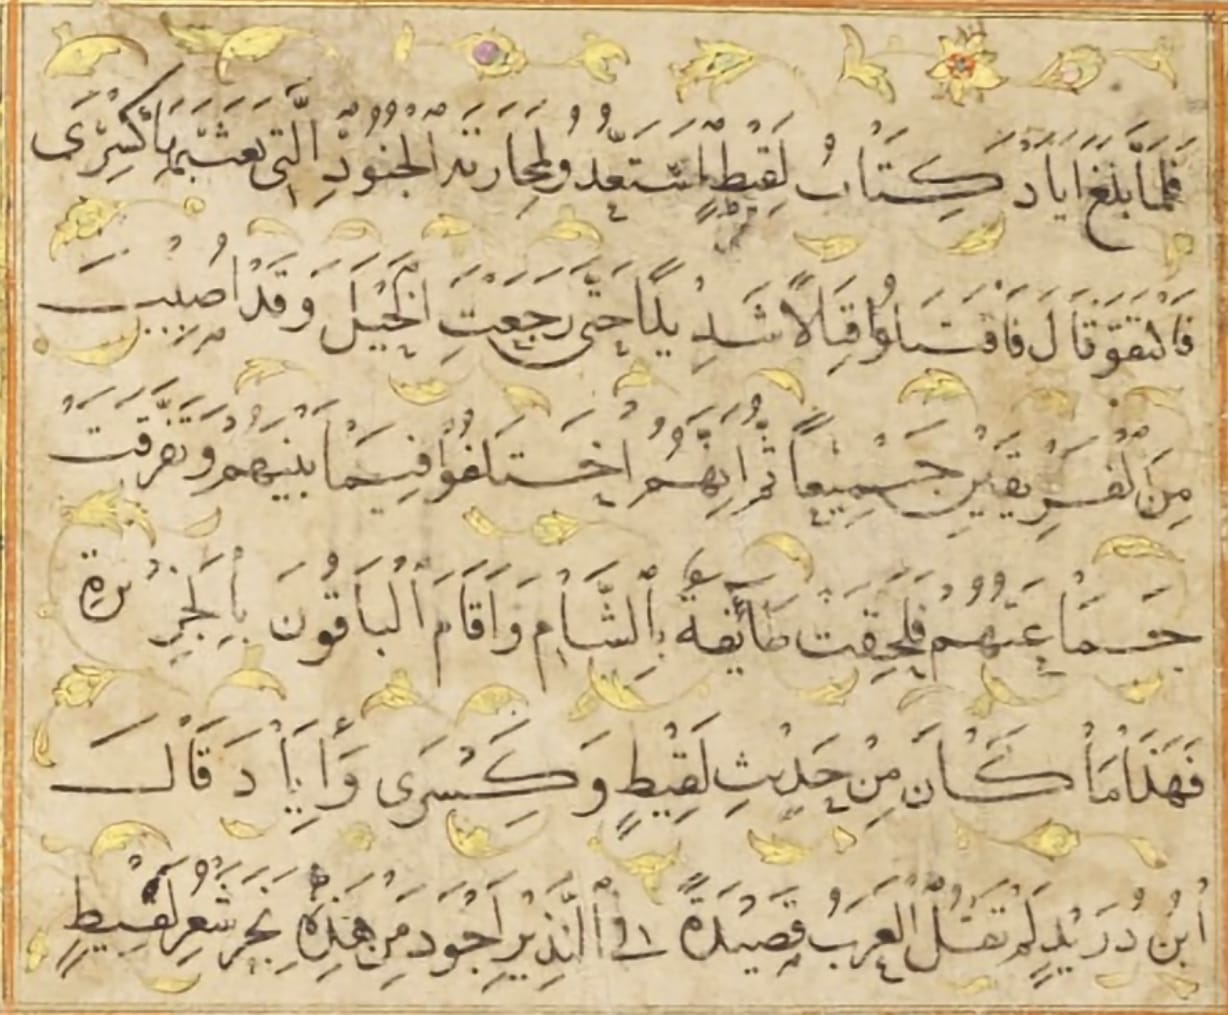 فَلَمَّا بَلَغَ اَيَادَ كِتَابُ لَقِيْطٍ اِسْتَعَدُّوْ لِمُحَارَبَةِ الْجُنُوْدِ الَّتِى بَعَثَ بِهَا كِسْرَى
فَالْتَقَوْ قَالَ فَاقْتَتَلُوْا قِتَالًا شَدِيْدًا حَتّٰى رَجَعَتِ الْخَيْلُ وَقَدْ اُصِيْبَ
مِنَ الْفَرِيْقَيْنِ جَمِيْعًا ثُمَّ اِنَّهُمُ اخْتَلَفُوْا فِيْمَا بَيْنَهُمْ وَتَفَرَّقَتْ
جَمَاعَتُهُمْ فَلَحِقَتْ طَائِفَةٌ بِالشَّامِ وَاَقَامَ الْبَاقُوْنَ بِالْجَزِيْرَةِ
فَهَذَا مَا كَانَ مِنْ حَدِيْثِ لَقِيْطٍ وَكِسْرَى وَأَيَادَ قَالَ
ابْنُ دُرَيْدٍ لَمْ تَقُلِ الْعَرَبُ قَصِيْدَةً فِى الَّنَذِيْرِ اَجْوَدَ مِنْ هَذِهِ نَجَزَ شِعْرُ لَقِيْطٍ